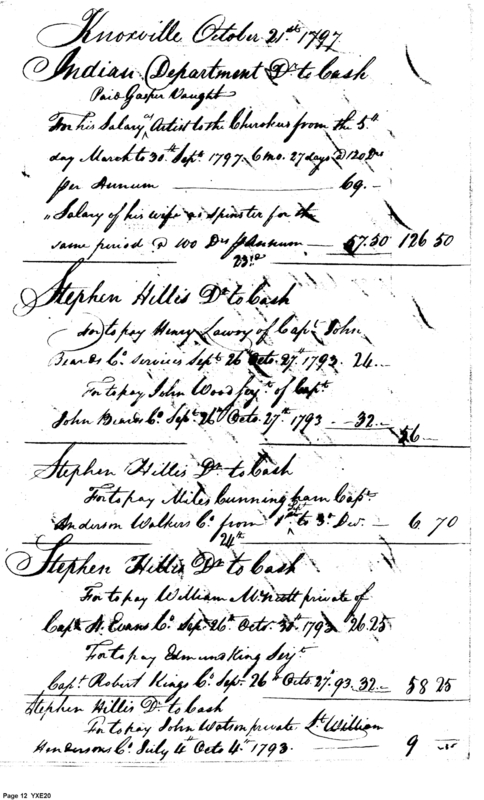 Knoxville October 21st 1797
Indian Department Dr to Cash
Paid Gasper Vaught
For his Salary as Artist to the Cherokees from the 5th
day March to 30th Sept 1797. 6 mo. 27 days @ 120 Drs
per Annum 69.
" Salary of his wife as spinster for the
same period @ 100 Drs p Annum 57.50 126 50
23rd
Stephen Hillis Dr to Cash
For to pay Henry of Capt John
Beards Co. Services Sept 26th Octo. 27th 1793. 24
For to pay John Wood of Capt
John Beards Co. Sept. 26th Octo. 27th 1793 32
56
Stephen Hillis Dr to Cash
For to pay Miles Cunningham Capt
Anderson Walkers Co. from 1st to 3d Dec. 6 70
24th
Stephen Hillis Dr to Cash
For to pay William private of
Capt N. Evans Co. Sept. 26th Octo. 30th 1793 26.25
For to pay Edmund King Serjt
Capt Robert Kings Co. Sept. 26th Octo. 27th 93. 32. 58 25
Stephen Hillis Dr to Cash
For to pay John Watson private Lt William
Hendersons Co. July 4th Octo 4th 1793. 9
Page 12 YXE20